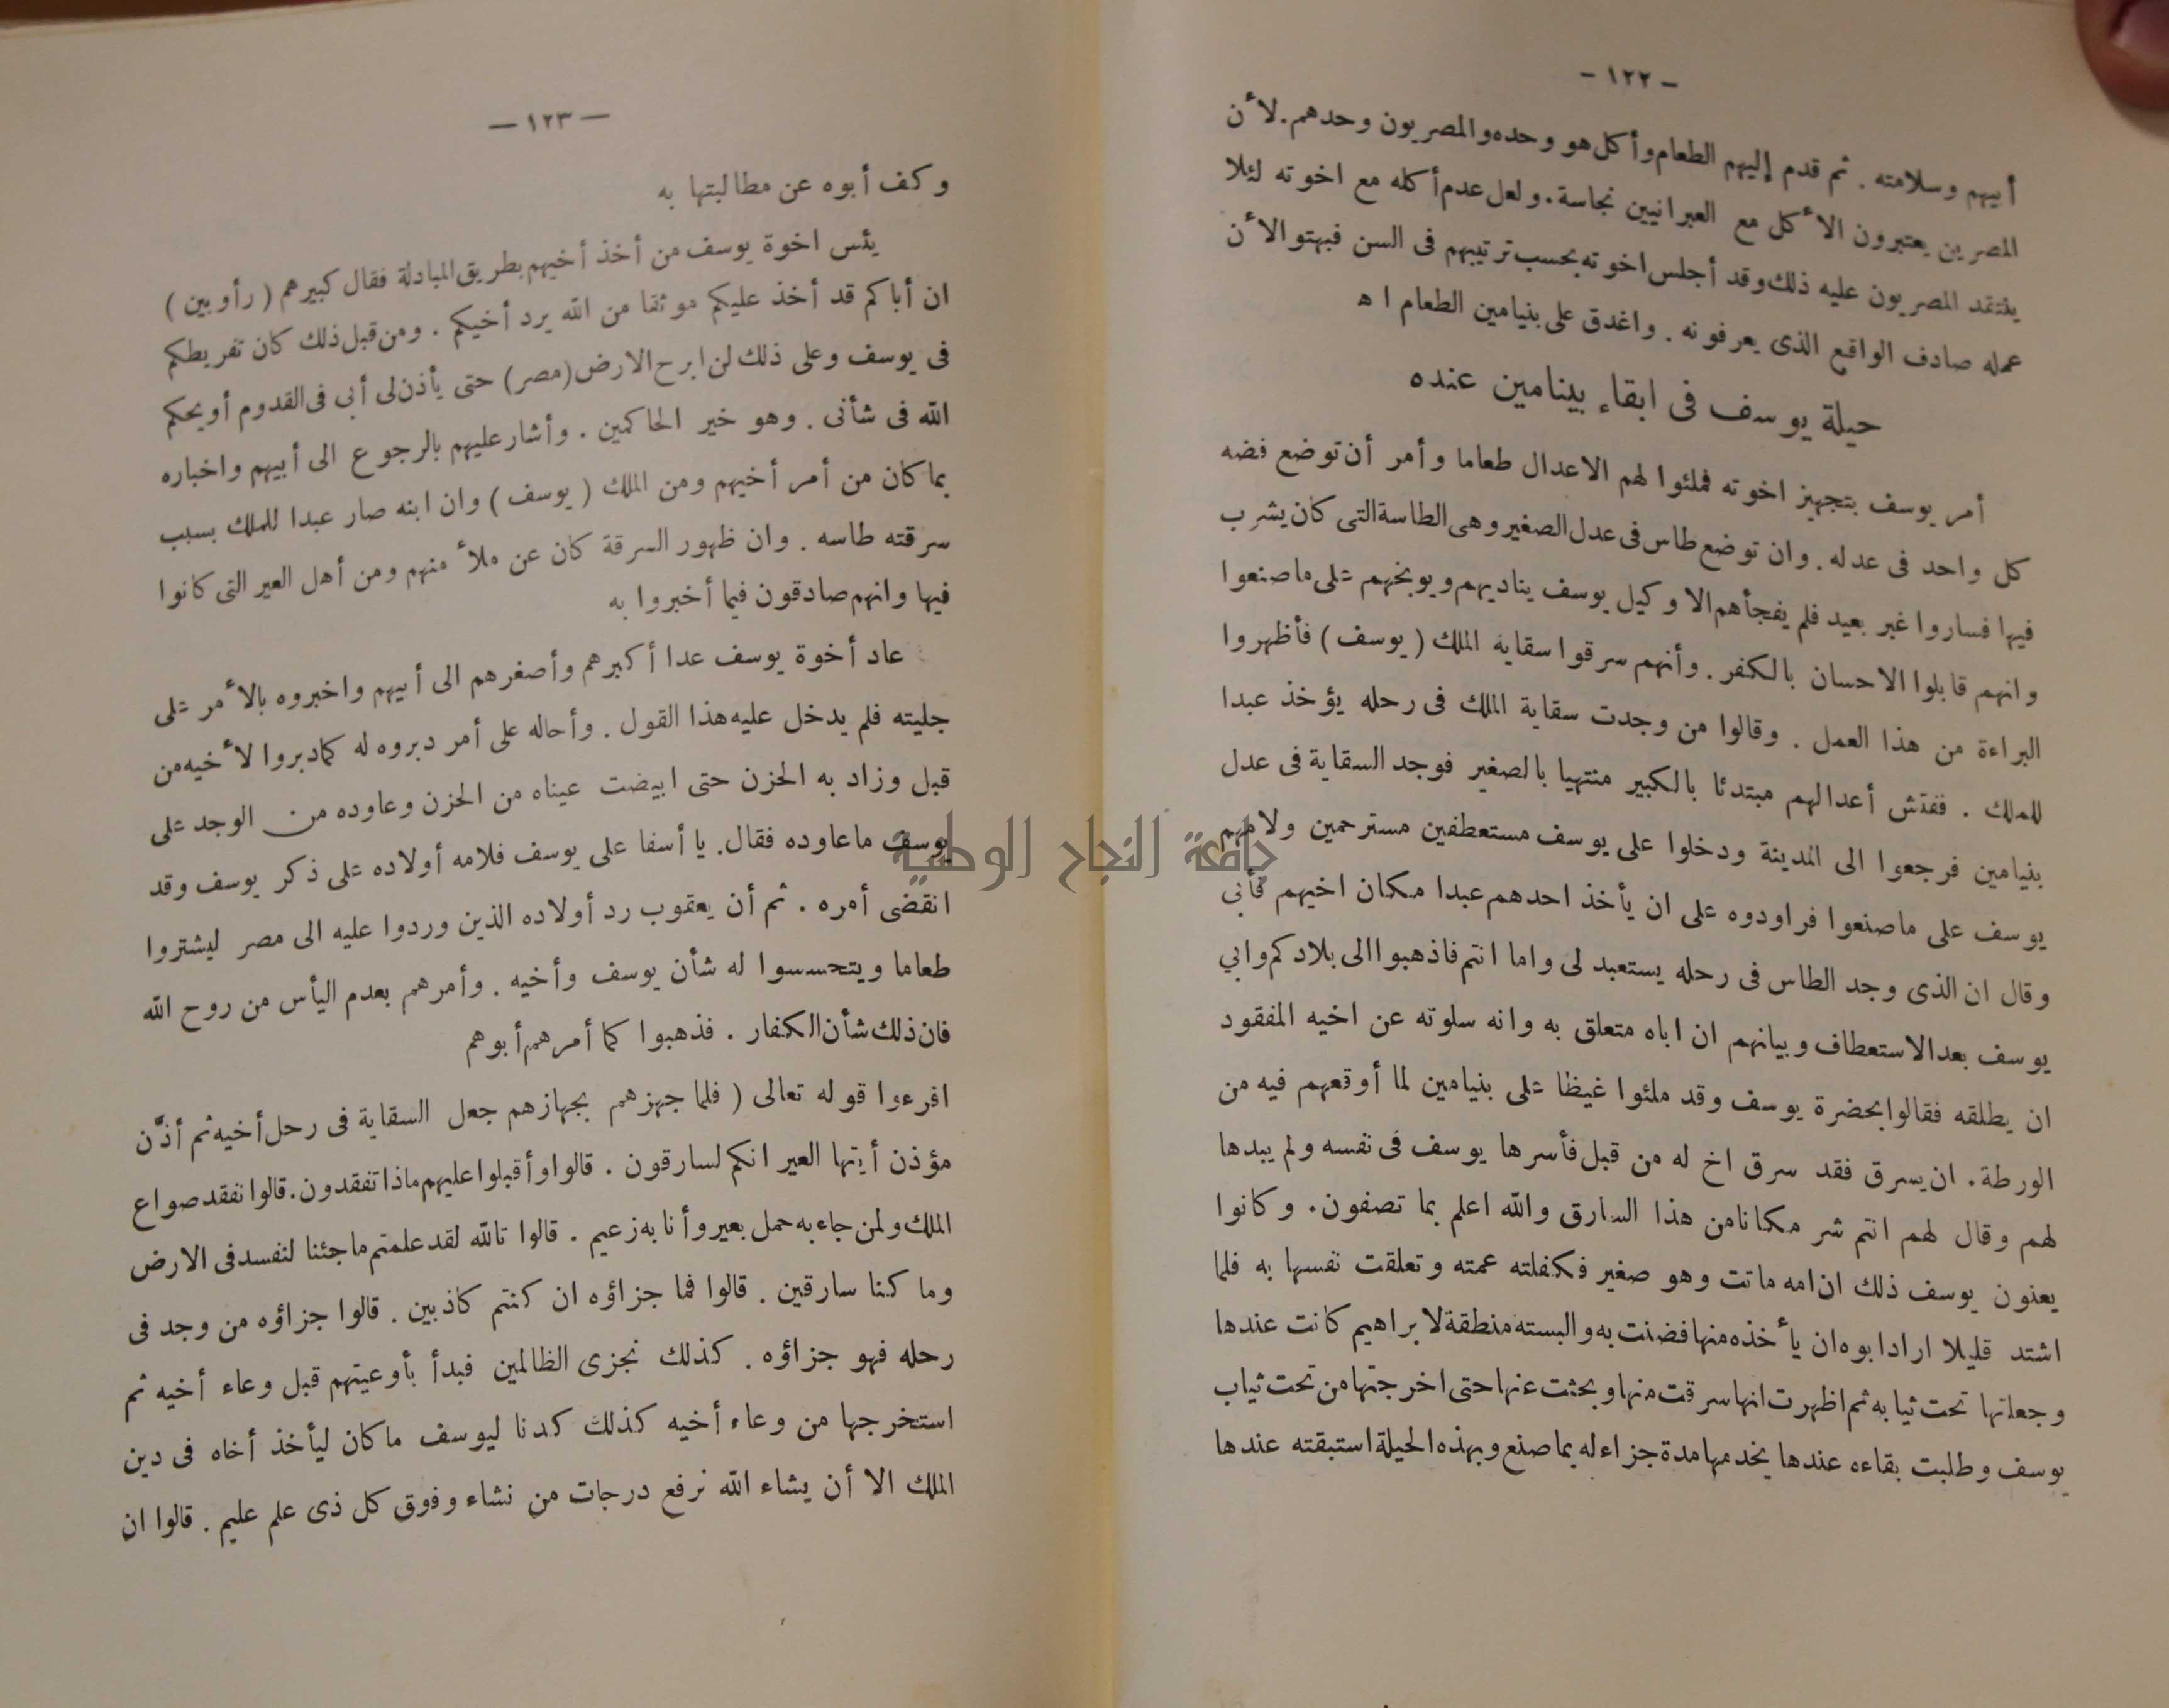 — ١٢٢ —
أبيهم وسلامته . ثم قدم إليهم الطعام وأكل هو وحده والمصريون وحدهم . لأن
المصريين يعتبرون الأكل مع العبرانيين نجاسة . ولعل عدم أكله مع اخوته لئلا
ينتقد المصريون عليه ذلك وقد أجلس اخوته بحسب ترتيبهم فى السن فبهتوا لأن
عمله صادف الواقع الذى يعرفونه . واغدق على بنيامين الطعام اه
حيلة يوسف فى ابقاء بينامين عنده
أمر يوسف بتجهيز اخوته فملئوا لهم الاعدال طعاما وأمر أن توضع فضه
كل واحد فى عدله . وان توضع طاس فى عدل الصغير وهى الطاسة التى كان يشرب
فيها فساروا غبر بعيد فلم يفجأهم الا وكيل يوسف يناديهم ويوبخهم على ماصنعوا
وانهم قابلوا الاحسان بالكفر . وأنهم سرقوا سقاية الملك ( يوسف ) فأظهروا
البراءة من هذا العمل . وقالوا من وجدت سقاية الملك فى رحله يؤخذ عبدا
للملك . ففتش أعدالهم مبتدئا بالكبير منتهيا بالصغير فوجد السقاية فى عدل
بنيامين فرجعوا الى المدينة ودخلوا على يوسف مستعطفين مسترحمين ولامهم
يوسف على ماصنعوا فراودوه على ان يأخذ احدهم عبدا مكان اخيهم فأبى
وقال ان الذى وجد الطاس فى رحله يستعبد لى واما انتم فاذهبوا الى بلادكم وابي
يوسف بعد الاستعطاف وبيانهم ان اباه متعلق به وانه سلوته عن اخيه المفقود
ان يطلقه فقالوا بحضرة يوسف وقد ملئوا غيظا على بنيامين لما أوقعهم فيه من
الورطة . ان يسرق فقد سرق اخ له من قبل فأسرها يوسف فى نفسه ولم يبدها
لهم وقال لهم انتم شر مكانا من هذا السارق والله اعلم بما تصفون . وكانوا
يعنون يوسف ذلك ان امه ماتت وهو صغير فكفلته عمته وتعلقت نفسها به فلما
اشتد قليلا اراد ابوه ان يأخذه منها فضنت به والبسته منطقة لابراهيم كانت عندها
وجعلتها تحت ثيابه ثم اظهرت انها سرقت منها وبحثت عنها حتى اخرجتها من تحت ثياب
يوسف وطلبت بقاءه عندها يخدمها مدة جزاء له بما صنع وبهذه الحيلة استبقته عندها
— ١٢٣ —
وكف أبوه عن مطالبتها به
يئس اخوة يوسف من أخذ أخيهم بطريق المبادلة فقال كبيرهم ( رأوبين )
ان أباكم قد أخذ عليكم موثقا من الله يرد أخيكم . ومن قبل ذلك كان تفريطكم
فى يوسف وعلى ذلك لن ابرح الارض ( مصر ) حتى يأذن لى أبى فى القدوم أو يحكم
الله فى شأنى . وهو خير الحاكمين . وأشار عليهم بالرجوع الى أبيهم واخباره
بما كان من أمر أخيهم ومن الملك ( يوسف ) وان ابنه صار عبدا للملك بسبب
سرقته طاسه . وان ظهور السرقة كان عن ملأ منهم ومن أهل العير التى كانوا
فيها وانهم صادقون فيما أخبروا به
عاد أخوة يوسف عدا أكبرهم وأصغرهم الى أبيهم واخبروه بالأمر على
جليته فلم يدخل عليه هذا القول . وأحاله على أمر دبروه له كما دبروا لأخيه من
قبل وزاد به الحزن حتى ابيضت عيناه من الحزن وعاوده من الوجد على
يوسف ماعاوده فقال . يا أسفا على يوسف فلامه أولاده على ذكر يوسف وقد
انقضى أمره . ثم أن يعقوب رد أولاده الذين وردوا عليه الى مصر ليشتروا
طعاما ويتحسسوا له شأن يوسف وأخيه . وأمرهم بعدم اليأس من روح الله
فان ذلك شأن الكفار . فذهبوا كما أمرهم أبوهم
اقرءوا قوله تعالى ( فلما جهزهم بجهازهم جعل السقاية فى رحل أخيه ثم أذّن
مؤذن أيتها العير انكم لسارقون . قالوا وأقبلوا عليهم ماذا تفقدون . قالوا نفقد صواع
الملك ولمن جاء به حمل بعير وأنا به زعيم . قالوا تالله لقد علمتم ماجئنا لنفسد فى الارض
وما كنا سارقين . قالوا فما جزاؤه ان كنتم كاذبين . قالوا جزاؤه من وجد فى
رحله فهو جزاؤه . كذلك نجزى الظالمين فبدأ بأوعيتهم قبل وعاء أخيه ثم
استخرجها من وعاء أخيه كذلك كدنا ليوسف ماكان ليأخذ أخاه فى دين
الملك الا أن يشاء الله نرفع درجات من نشاء وفوق كل ذى علم عليم . قالوا ان
جامعة النجاح الوطنية